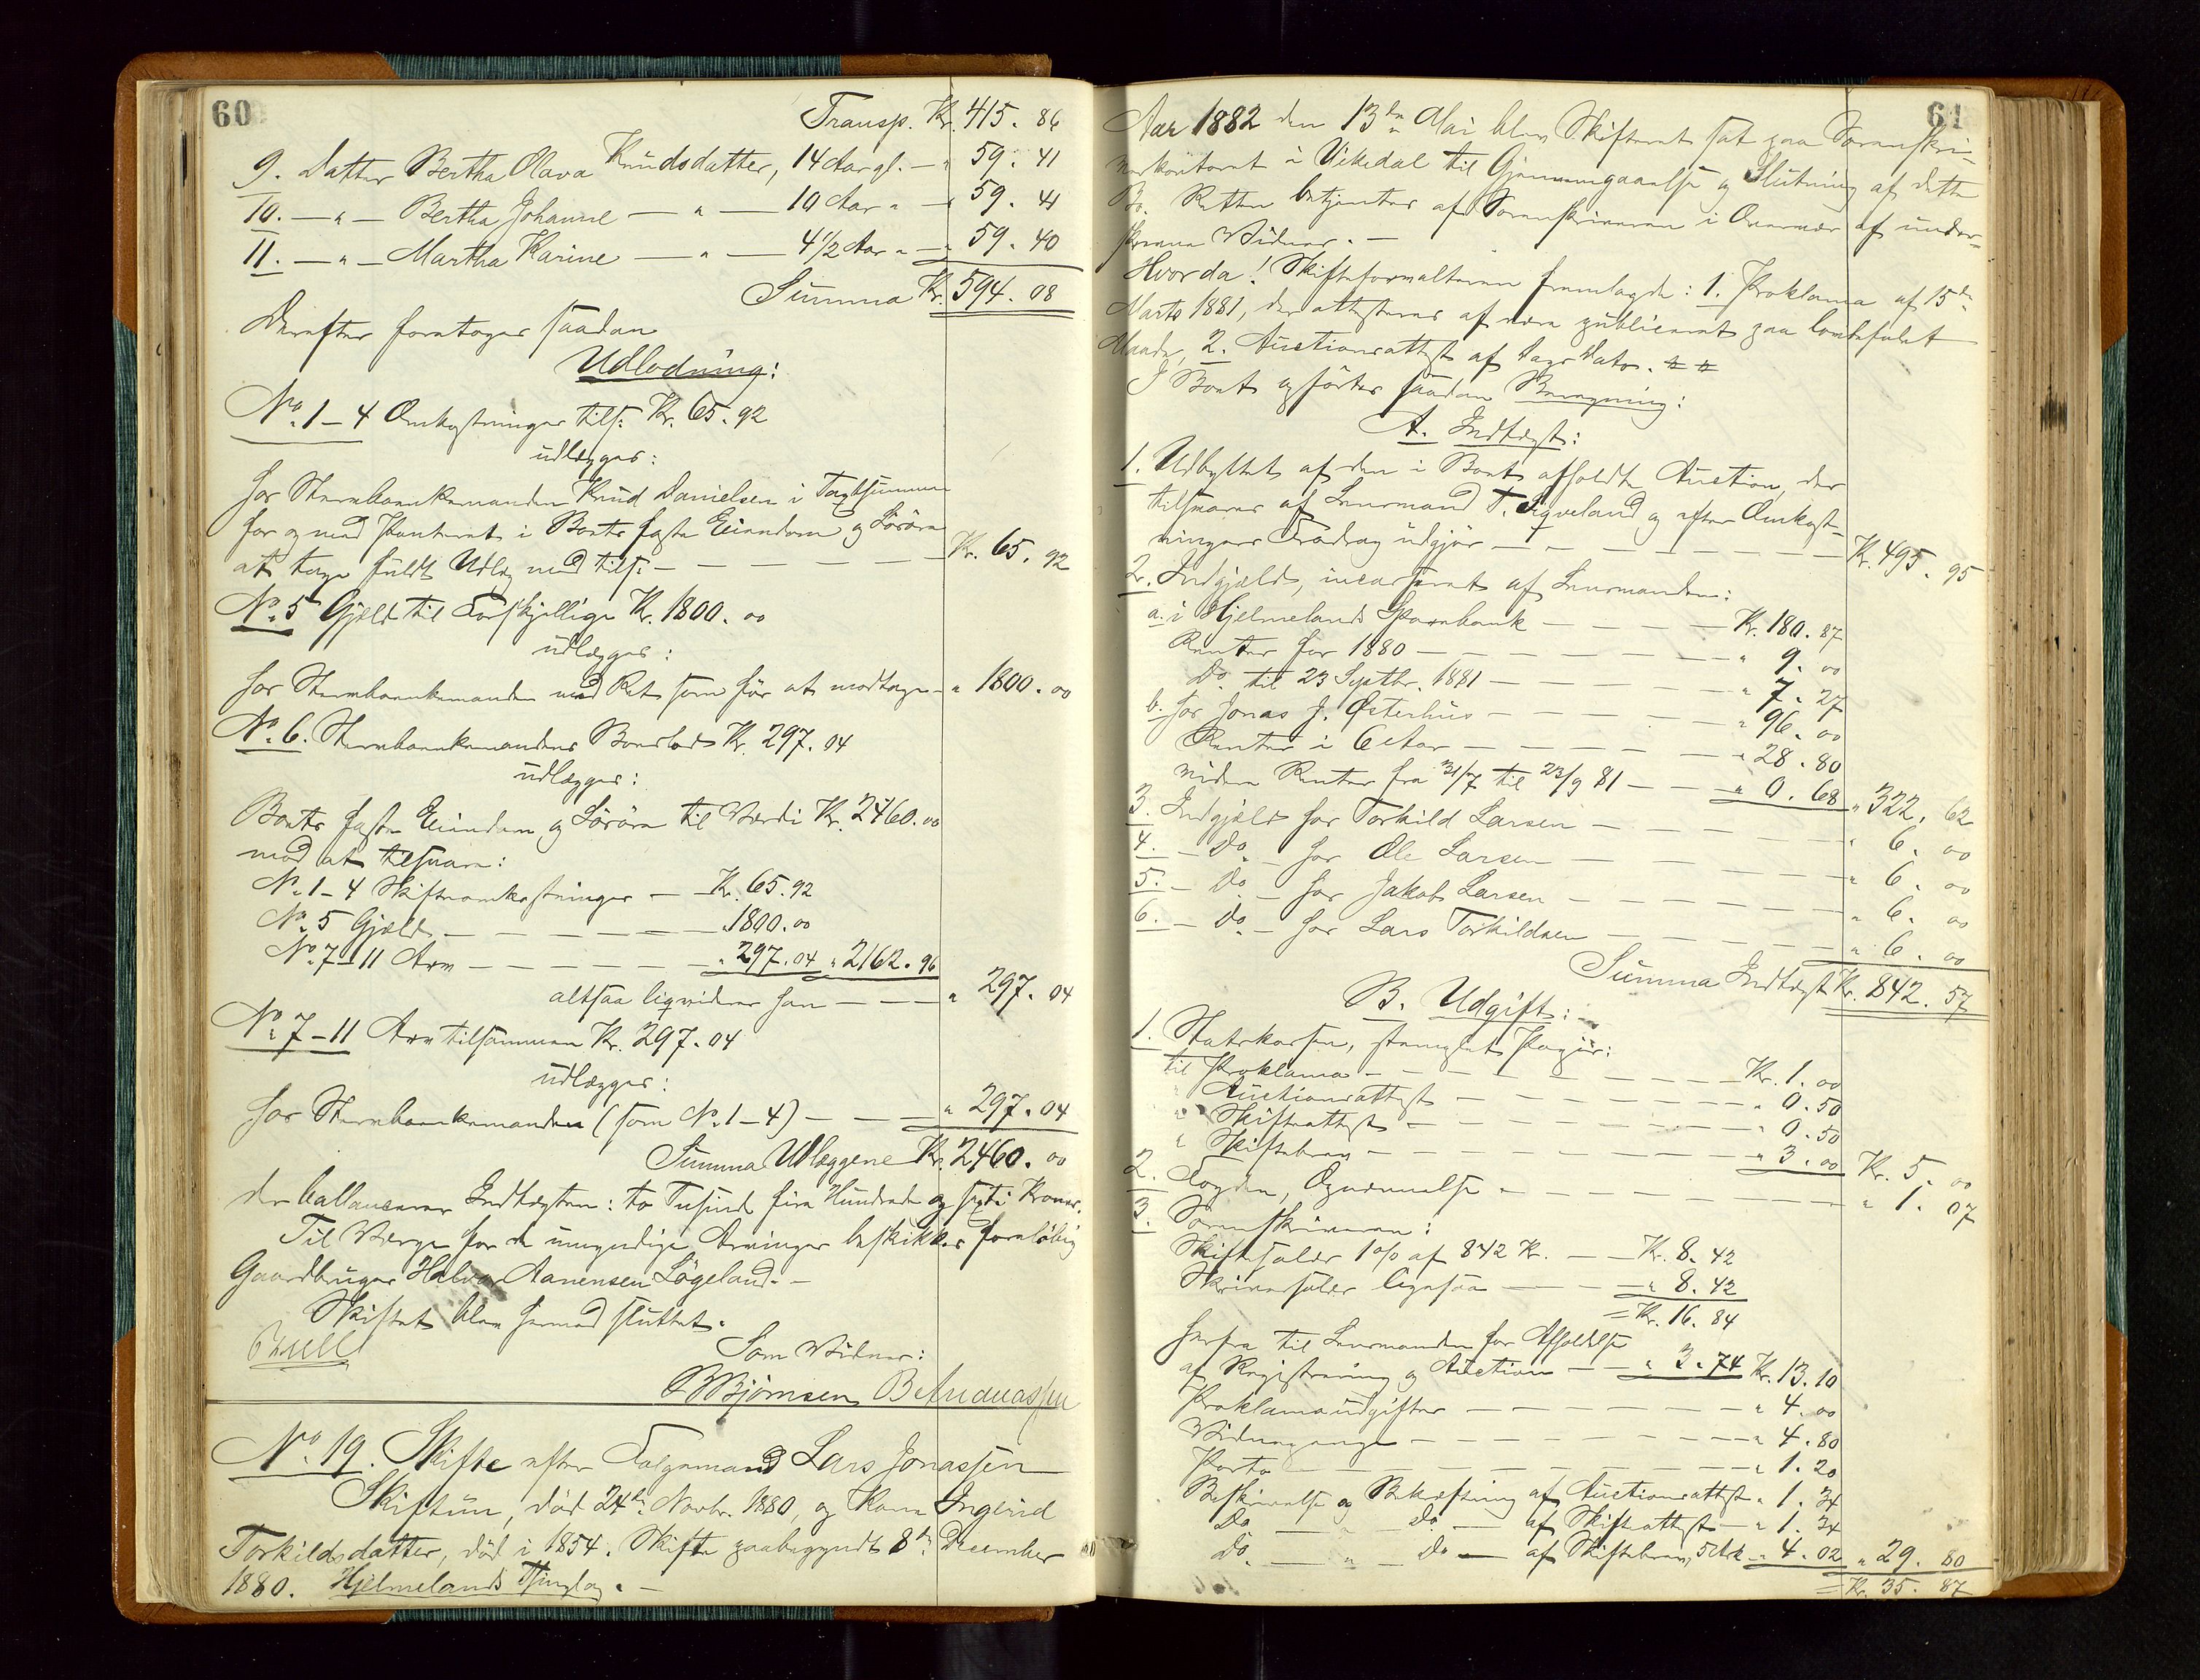 60
Transp. Kr. 415. 86
9. Datter Bertha Olava Knudsdatter, 14 Aar gl. — " 59. 41
10. — " — Bertha Johanne — " — 10 Aar " — " 59. 41
11. — " — Martha Karine — " — 4 1/2 Aar " — " 59. 40
Summa Kr. 594. 08
Derefter foretoges saadan
Udlodning:
No. 1 – 4 Omkostninger tils. Kr. 65. 92
udlægges:
hos Stervboenkemanden Knud Danielsen i Taxtsummen
for og med Panteret i Boets faste Eiendom og Løsøre
at tage fuldt Udlæg med tils. — Kr. 65. 92
No. 5 Gjeld til Forskjellige Kr. 1800. 00
udlægges:
hos Stervboenkemanden med Ret som før at modtage — " 1800. 00
No. 6. Stervboenkemandens Boeslod Kr. 297. 04
udlægges:
Boets faste Eiendom og Løsøre til Værdi Kr. 2460. 00
mod at tilsvare:
No. 1 – 4 Skifteomkostninger — Kr. 65. 92
No. 5 Gjeld — " 1800. 00
No. 7 – 11 Arv — " 297. 04 " 2162. 96
altsaa liqviderer han — " 297. 04
No. 7 – 11 Arv tilsammen Kr. 297. 04
udlægges:
hos Stervboenkemanden (som No. 1 – 4) — " 297. 04
Summa Udlæggene Kr. 2460. 00
der ballancerer Indtægten: to Tusind fire Hundrede og sexti Kroner.
Til Værge for de umyndige Arvinger beskikkes foreløbig
Gaardbruger Halvor Aanensen Løgeland. —
Skiftet blev hermed sluttet.
Som Vidner:
B Bjørnsen B Andreassen
No. 19. Skifte efter Folgemand Lars Jonassen
Skiftun, død 24de Novbr. 1880, og Kone Ingerid
Torkildsdatter, død i 1854. Skifte paabegyndt 8de December
1880. Hjelmelands Thinglag. —
61
Aar 1882 den 13de Mai blev Skifteret sat paa Sorenskri-
verkontoret i Vikedal til Gjennemgaaelse og Slutning af dette
Bo. Retten betjentes af Sorenskriveren i Overvær af under-
skrevne Vidner. —
Hvorda! Skifteforvalteren fremlagde: 1. Proklama af 15de
Marts 1881, der attesteres af være publiceret paa lovbefalet
Maade, 2. Auctionsattest af Dags Dato.
I Boet opførtes saadan Beregning:
A. Indtægt:
1. Udbyttet af den i Boet afholdte Auction, der
tilsvares af Lensmand T. Sigveland og efter Omkost-
ningers Fradrag udgjør — Kr. 495. 95
2. Indgjeld, incasseret af Lensmanden:
a. i Hjelmelands Sparebank — Kr. 180. 87
Renter for 1880 — " 9. 00
Do. til 23 Septbr. 1881 — " 7. 27
b. hos Jonas J. Østerhus — " 96. 00
Renter i 6 Aar — " 28. 80
videre Renter fra 31/7 til 23/9 81 — " 0. 68 " 322. 62
3. Indgjeld hos Torkild Larsen — " 6. 00
4. — Do. — hos Ole Larsen — " 6. 00
5. — Do. — hos Jakob Larsen — " 6. 00
6. — Do. — hos Lars Torkildsen — " 6. 00
Summa Indtægt Kr. 842. 57
B. Udgift:
1. Statskassen, stemplet Papir:
til Proklama — Kr. 1. 00
" Auctionsattest — " 0. 50
" Skifteattest — " 0. 50
" Skiftebrev — " 3. 00 Kr. 5. 00
2. Fogden, Opnævnelse — " 1. 07
3. Sorenskriveren:
Skiftesalær 1 o/o af 842 Kr. — Kr. 8. 42
Skriversalær ligesaa — " 8. 42
= Kr. 16. 84
herfra til Lensmanden for Afholdelse
af Registrering og Auction — " 3. 74 Kr. 13. 10
Proklamaudgifter — " 4. 00
Vidnepenge — " 4. 80
Porto — " 1. 20
Beskrivelse og Bekræftning af Auctionsattest " 1. 34
Do. — " — Do. — af Skifteattest — " 1. 34
Do. — " — Do. — af Skiftebrev, 5 Ark " 4. 02 " 29. 80
= Kr. 35. 87